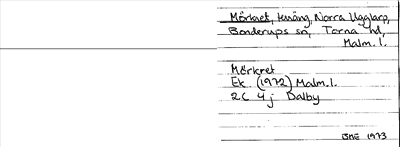 Mörkret, Huäng, Norra Ugglarp,
Bonderups sn, Torna hd,
Malm. l.
Mörkret
Ek (1972) Malm.l.
2C 4j Dalby
BME 1973